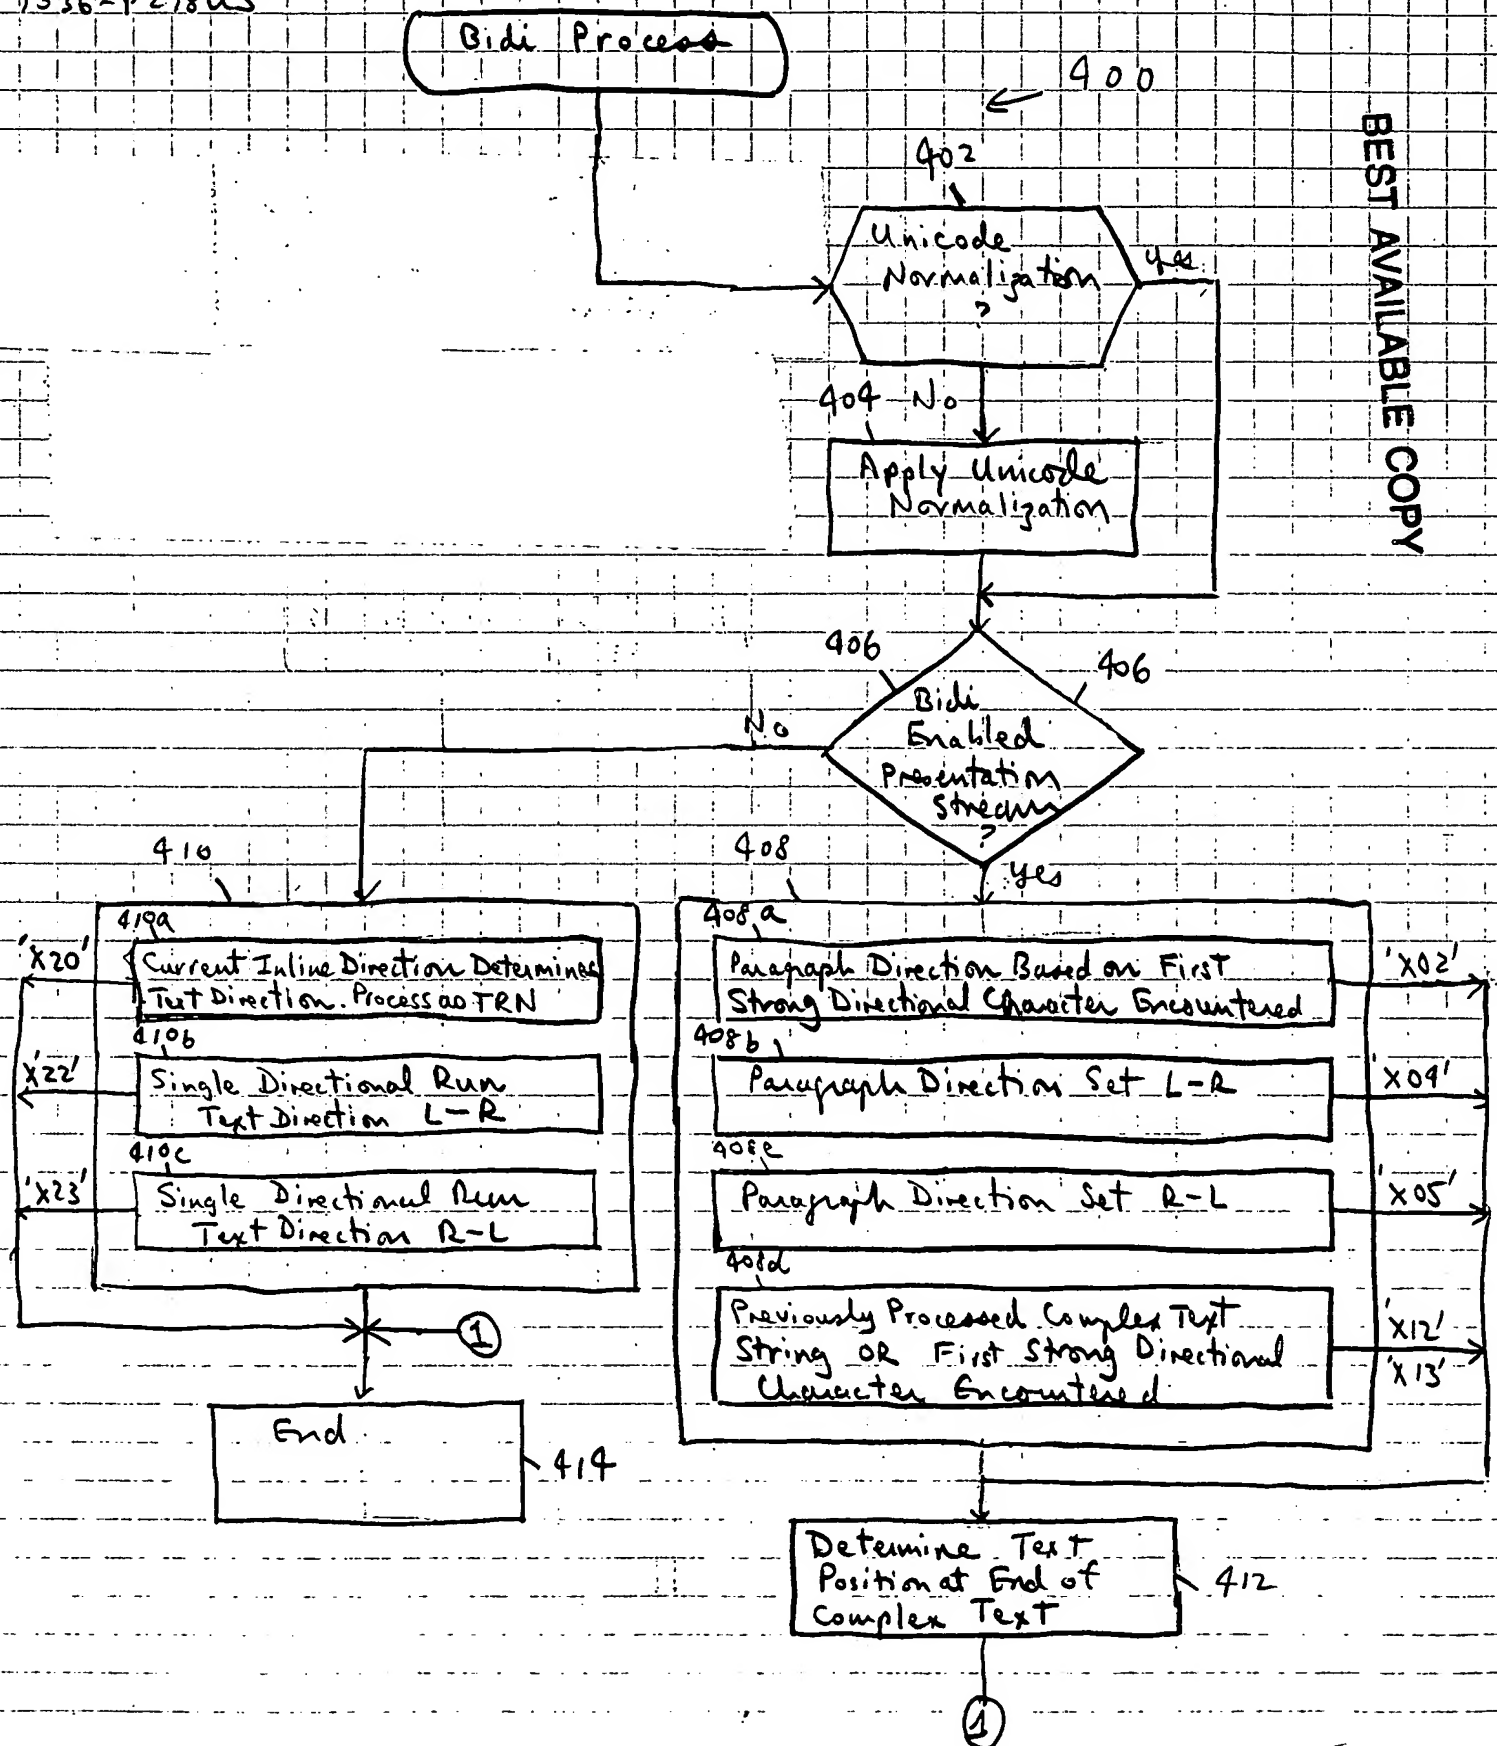 Bidi Process
400
BEST AVAILABLE COPY
402
Unicode
Normalization
?
yes
404 No
Apply Unicode
Normalization
406
406
Bidi
Enabled
Presentation
Stream
?
No
yes
410
408
410a
Current Inline Direction Determines
Text Direction. Process as TRN
'X20'
410b
Single Directional Run
Text Direction L-R
'X22'
410c
Single Directional Run
Text Direction R-L
'X23'
408a
Paragraph Direction Based on First
Strong Directional Character Encountered
'X02'
408b
Paragraph Direction Set L-R
'X04'
408c
Paragraph Direction Set R-L
'X05'
408d
Previously Processed Complex Text
String OR First Strong Directional
Character Encountered
'X12'
'X13'
1
End
414
Determine Text
Position at End of
Complex Text
412
1